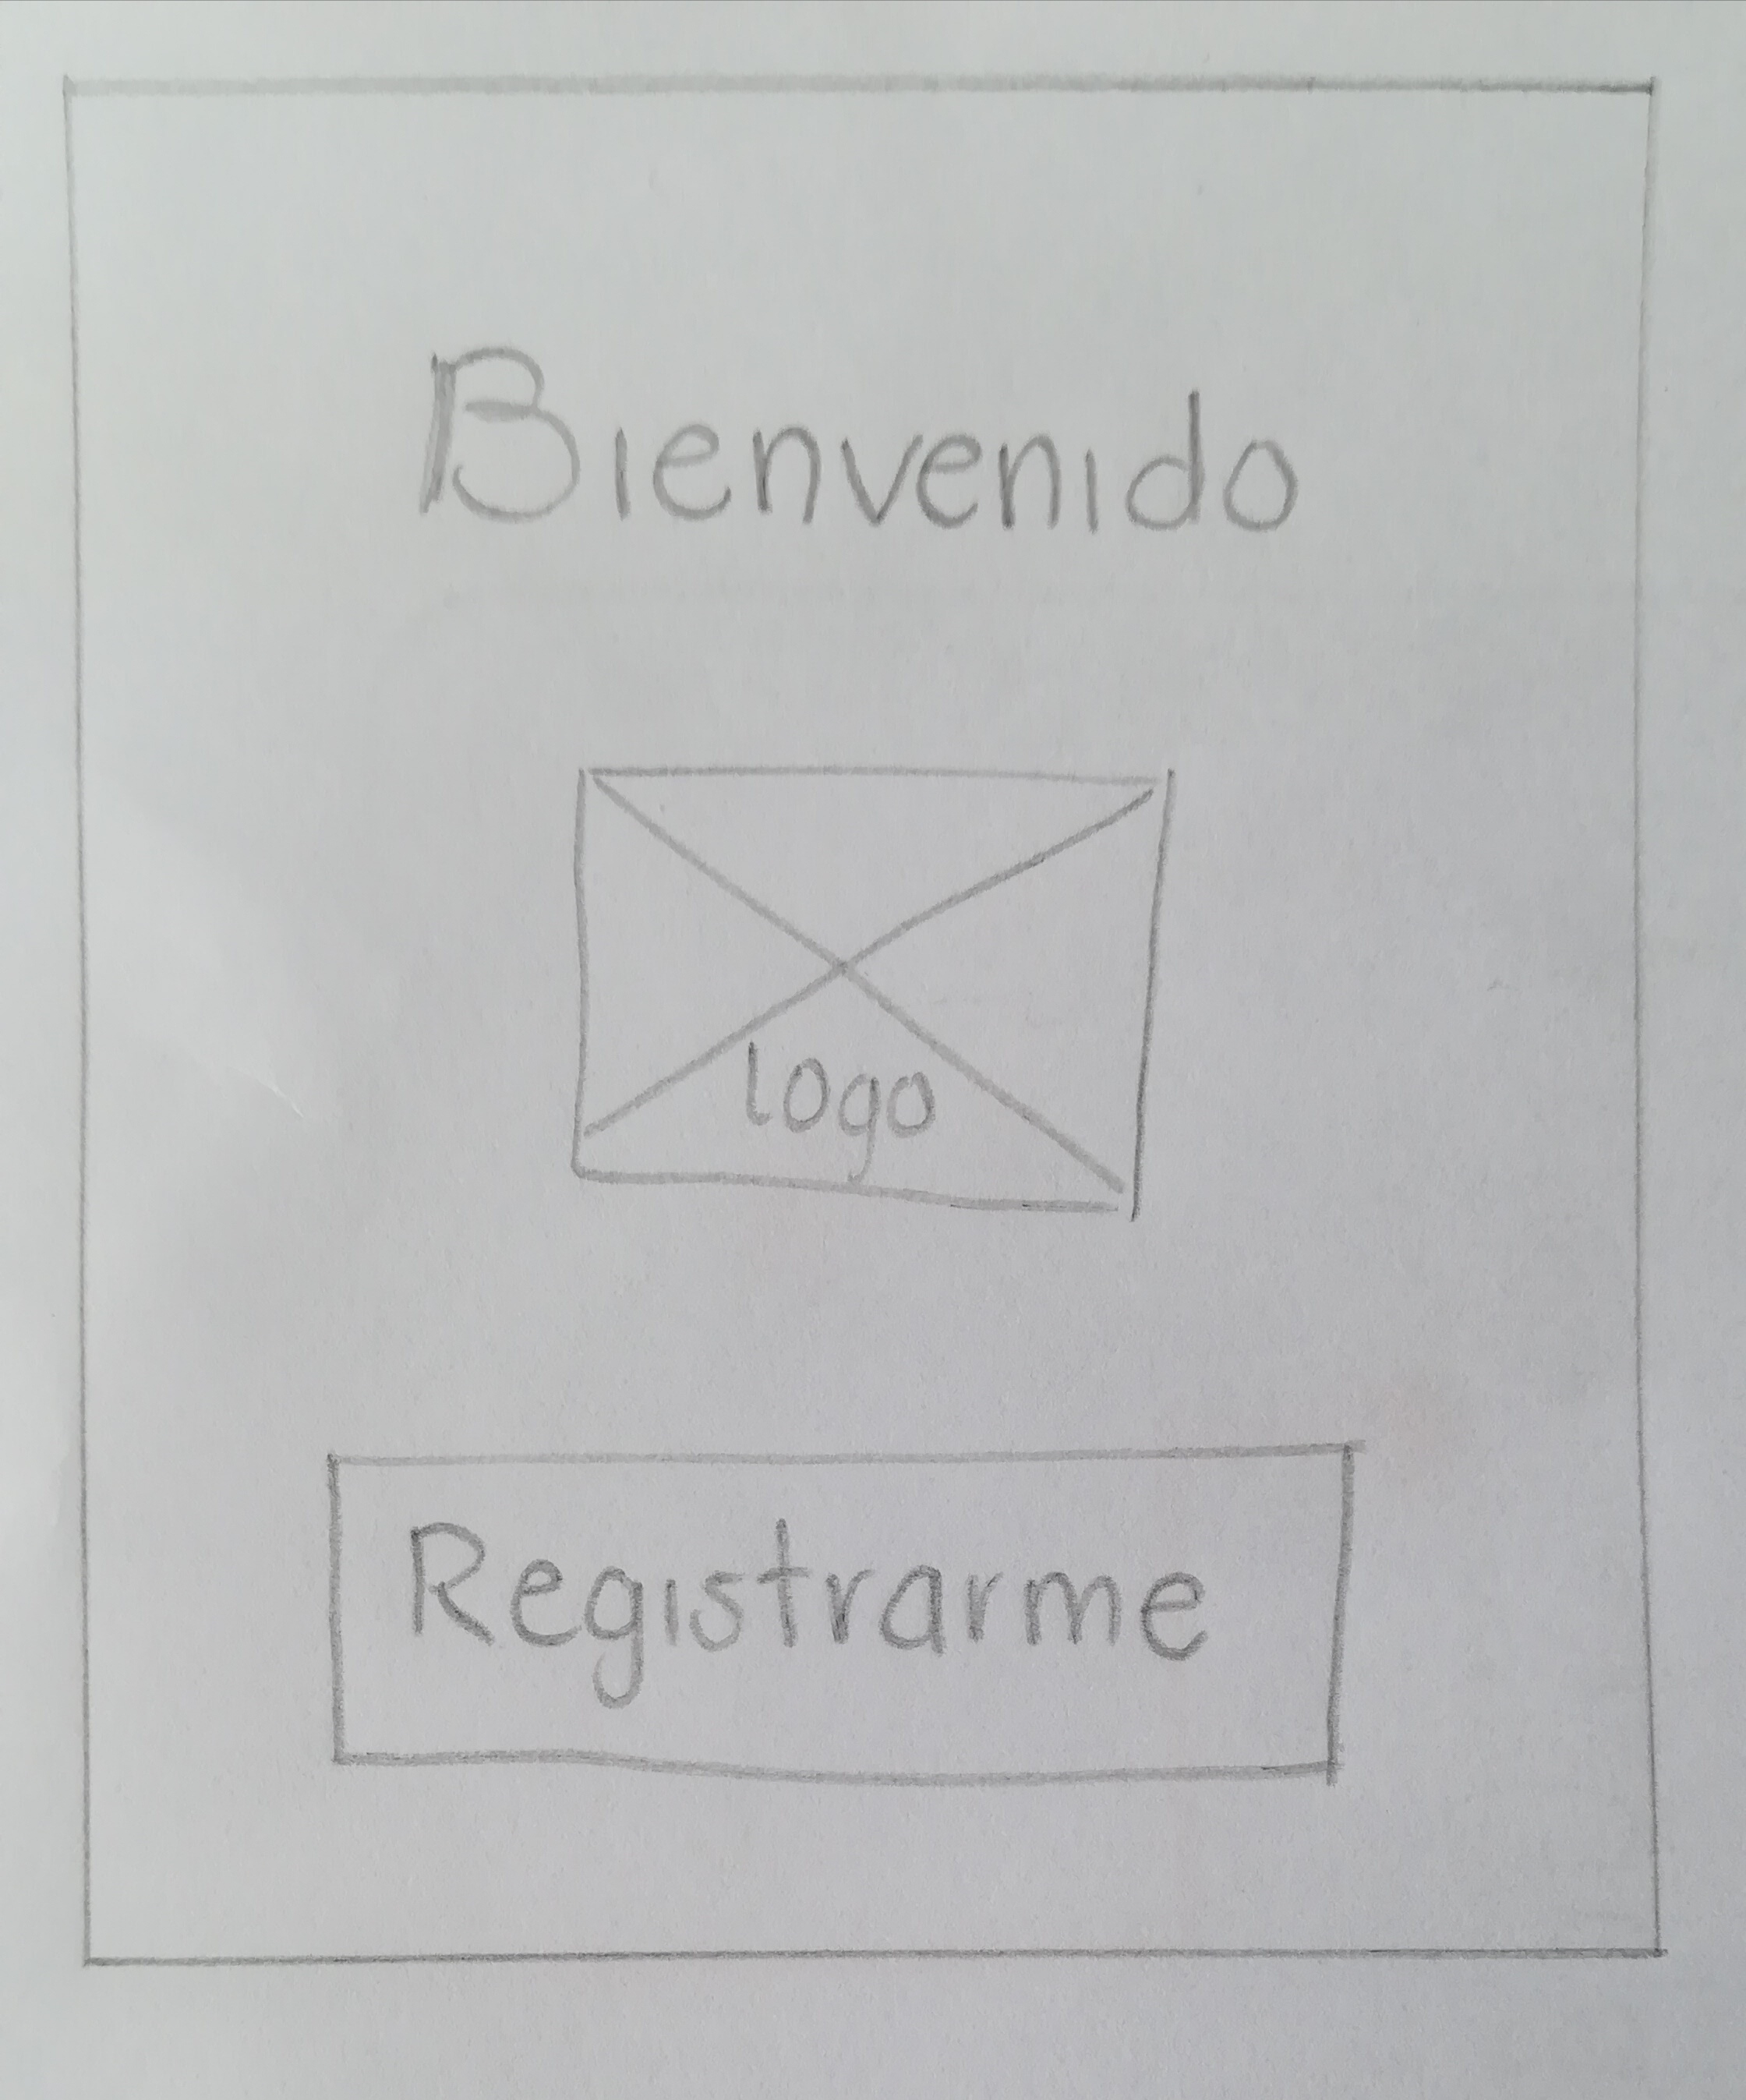 Bienvenido
logo
Registrarme